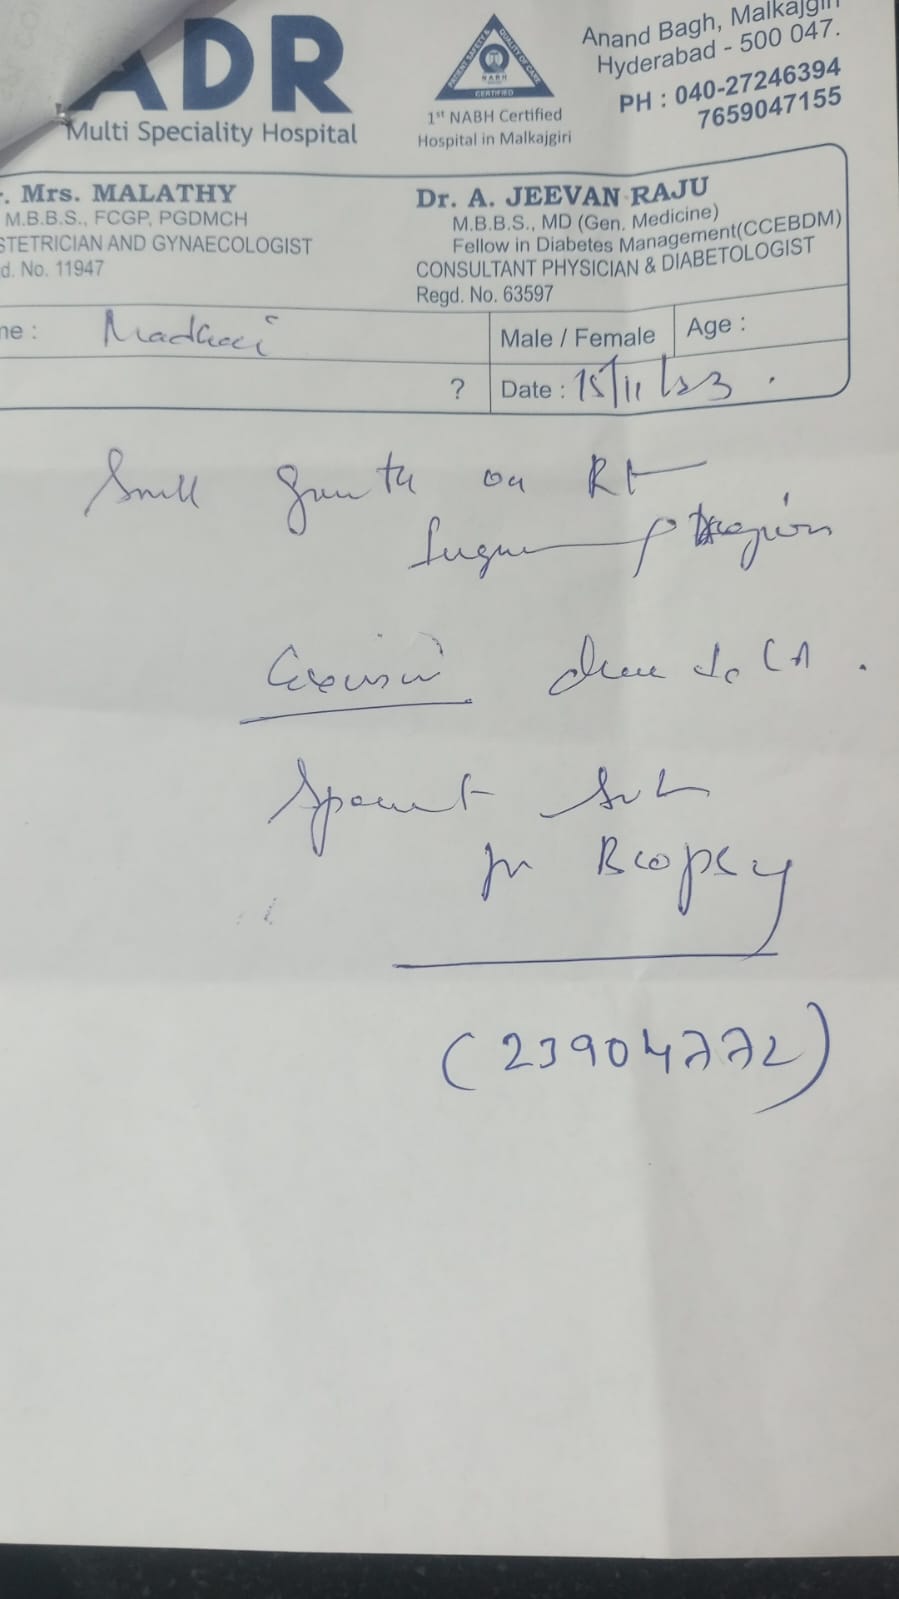 ADR
Multi Speciality Hospital
PATIENT SAFETY & QUALITY OF CARE
NABH
CERTIFIED
1st NABH Certified
Hospital in Malkajgiri
Anand Bagh, Malkajgiri
Hyderabad - 500 047.
PH : 040-27246394
7659047155
. Mrs. MALATHY
M.B.B.S., FCGP, PGDMCH
STETRICIAN AND GYNAECOLOGIST
d. No. 11947
Dr. A. JEEVAN RAJU
M.B.B.S., MD (Gen. Medicine)
Fellow in Diabetes Management(CCEBDM)
CONSULTANT PHYSICIAN & DIABETOLOGIST
Regd. No. 63597
me :
Male / Female
Age :
?
Date : 15/11/23 .
Small growth on Rt
region
Excision done LA .
for Biopsy
(23904772)